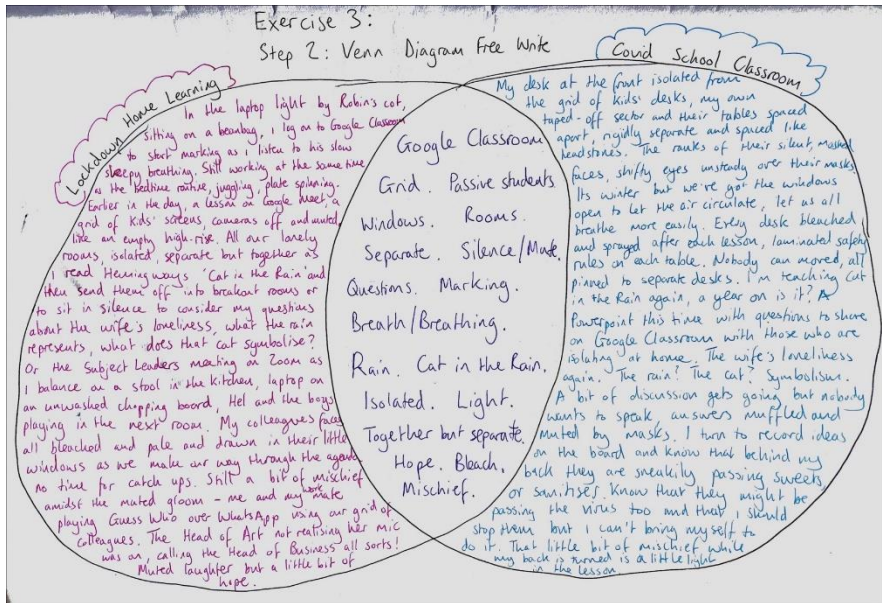 Exercise 3:
Step 2: Venn Diagram Free Write
Lockdown Home Learning
In the laptop light by Robin's cot,
Sitting on a beanbag, I log on to Google Classroom
to start marking as I listen to his slow
sleepy breathing. Still working at the same time
as the bedtime routine, juggling, plate spinning.
Earlier in the day, a lesson on Google Meet, a
grid of kids' screens, cameras off and muted,
like an empty high-rise. All our lonely
rooms, isolated, separate but together as
I read Hemingways 'Cat in the Rain' and
then send them off into breakout rooms or
to sit in silence to consider my questions
about the wife's loneliness, what the rain
represents, what does that cat symbolise?
Or the Subject Leaders meeting on Zoom as
I balance on a stool in the kitchen, laptop on
an unwashed chopping board, Hel and the boys
playing in the next room. My colleagues faces
all bleached and pale and drawn in their little
windows as we make our way through the agenda
no time for catch ups. Still a bit of mischief
amidst the muted gloom - me and my work mate
playing Guess Who over WhatsApp using our grid of
colleagues. The Head of Art not realising her mic
was on, calling the Head of Business all sorts!
Muted laughter but a little bit of
hope.
Google Classroom
Grid. Passive students
Windows. Rooms.
Separate. Silence/Mute.
Questions. Marking.
Breath/Breathing.
Rain. Cat in the Rain.
Isolated. Light.
Together but separate.
Hope. Bleach.
Mischief.
Covid School Classroom
My desk at the front isolated from
the grid of kids' desks, my own
taped-off sector and their tables spaced
apart, rigidly separate and spaced like
headstones. The ranks of their silent, masked
faces, shifty eyes unsteady over their masks.
Its winter but we've got the windows
open to let the air circulate, let us all
breathe more easily. Every desk bleached
and sprayed after each lesson, laminated safety
rules on each table. Nobody can moved, all
pinned to separate desks. I'm teaching Cat
in the Rain again, a year on is it? A
Powerpoint this time with questions to share
on Google Classroom with those who are
isolating at home. The wife's loneliness
again. The rain? The cat? Symbolism.
A bit of discussion gets going but nobody
wants to speak, answers muffled and
muted by masks. I turn to record ideas
on the board and know that behind my
back they are sneakily passing sweets
or sanitiser. Know that they might be
passing the virus too and that I should
stop them but I can't bring myself to
do it. That little bit of mischief while
my back is turned is a little light
in the lesson